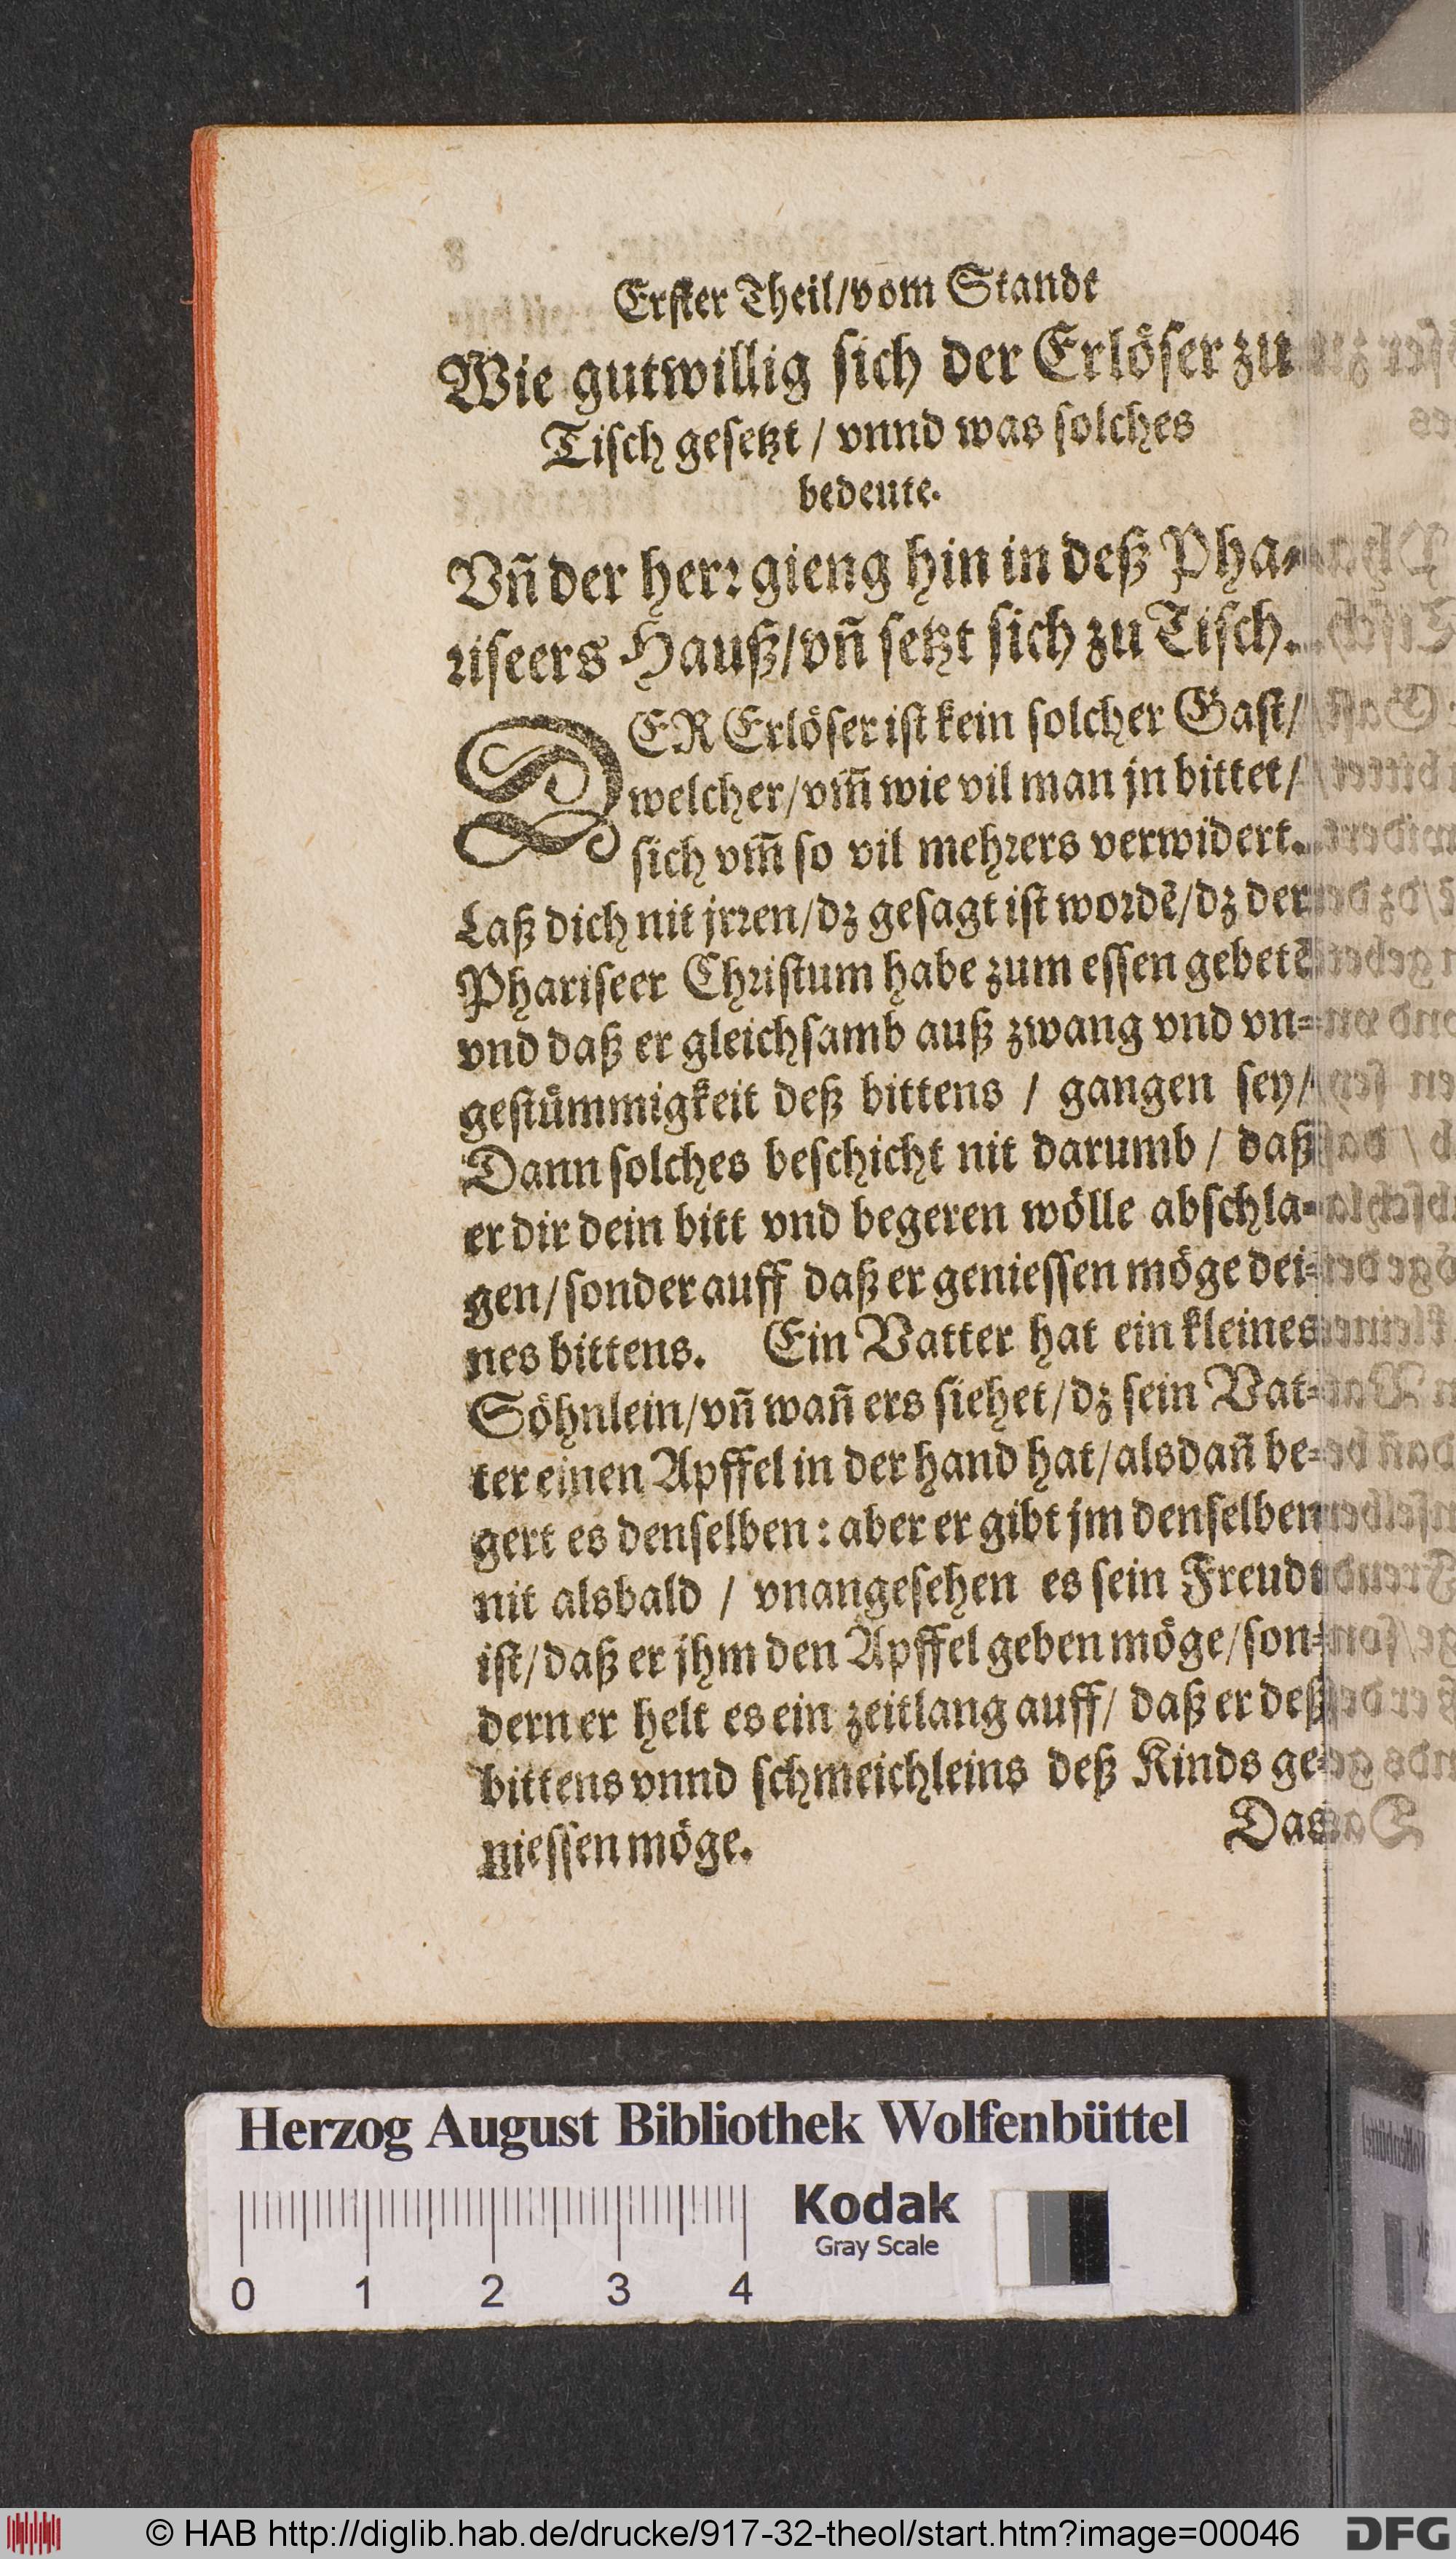 Erster Theil/vom Standt
Wie gutwillig sich der Erlöser zu
Tisch gesetzt / vnnd was solches
bedeute.
Vñ der herꝛ gieng hin in deß Pha-
riseers Hauß/vñ setzt sich zu Tisch.
DER Erlöser ist kein solcher Gast/
welcher/vm̃ wie vil man jn bittet/
sich vm̃ so vil mehꝛers verwidert.
Laß dich nit jrꝛen/dz gesagt ist woꝛdẽ/dz der
Phariseer Chꝛistum habe zum essen gebetẽ
vnd daß er gleichsamb auß zwang vnd vn-
gestümmigkeit deß bittens / gangen sey/
Dann solches beschicht nit darumb / daß
er dir dein bitt vnd begeren wölle abschla-
gen/sonder auff daß er geniessen möge dei-
nes bittens. Ein Vatter hat ein kleines
Söhnlein/vñ wañ ers siehet/dz sein Vat-
ter einen Apffel in der hand hat/alsdañ be-
gert es denselben: aber er gibt jm denselben
nit alsbald / vnangesehen es sein Freudt
ist/daß er jhm den Apffel geben möge/son-
dern er helt es ein zeitlang auff/ daß er deß
bittens vnnd schmeichleins deß Kinds ge-
niessen möge.
Das
Herzog August Bibliothek Wolfenbüttel
Kodak
Gray Scale
0 1 2 3 4
© HAB http://diglib.hab.de/drucke/917-32-theol/start.htm?image=00046
DFG